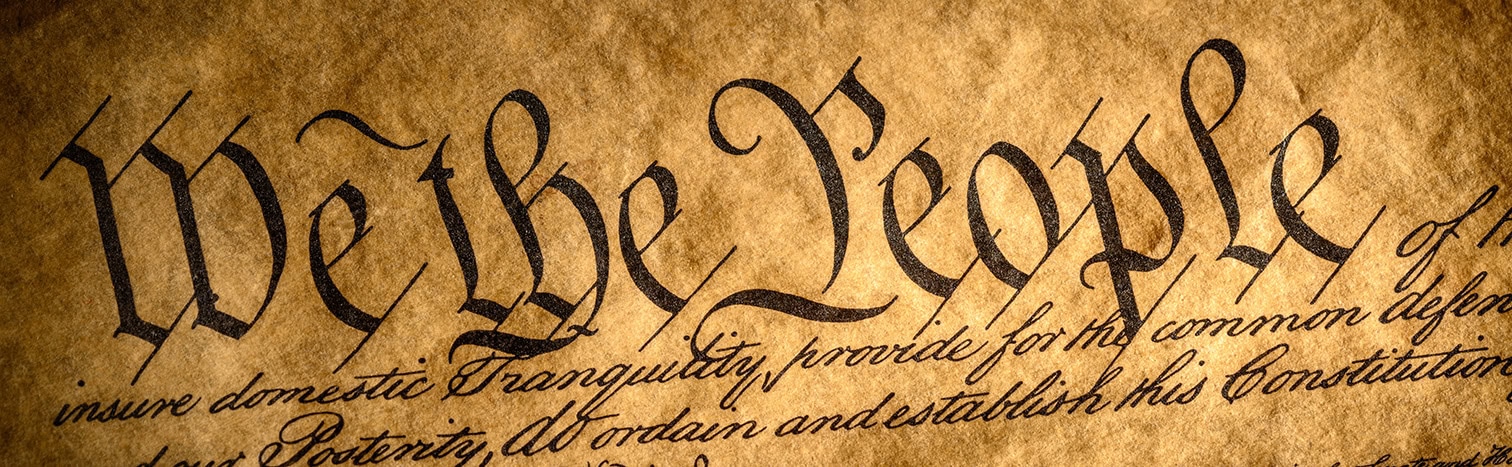 We the People of
insure domestic Tranquility, provide for the common
our Posterity, do ordain and establish this Constitution